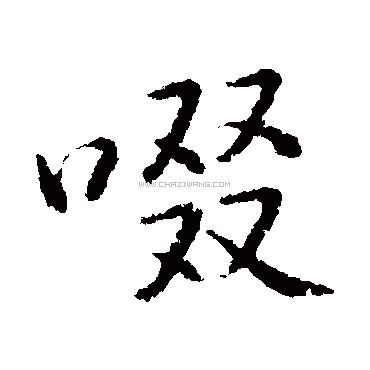 啜
WWW.CHAZIWANG.COM